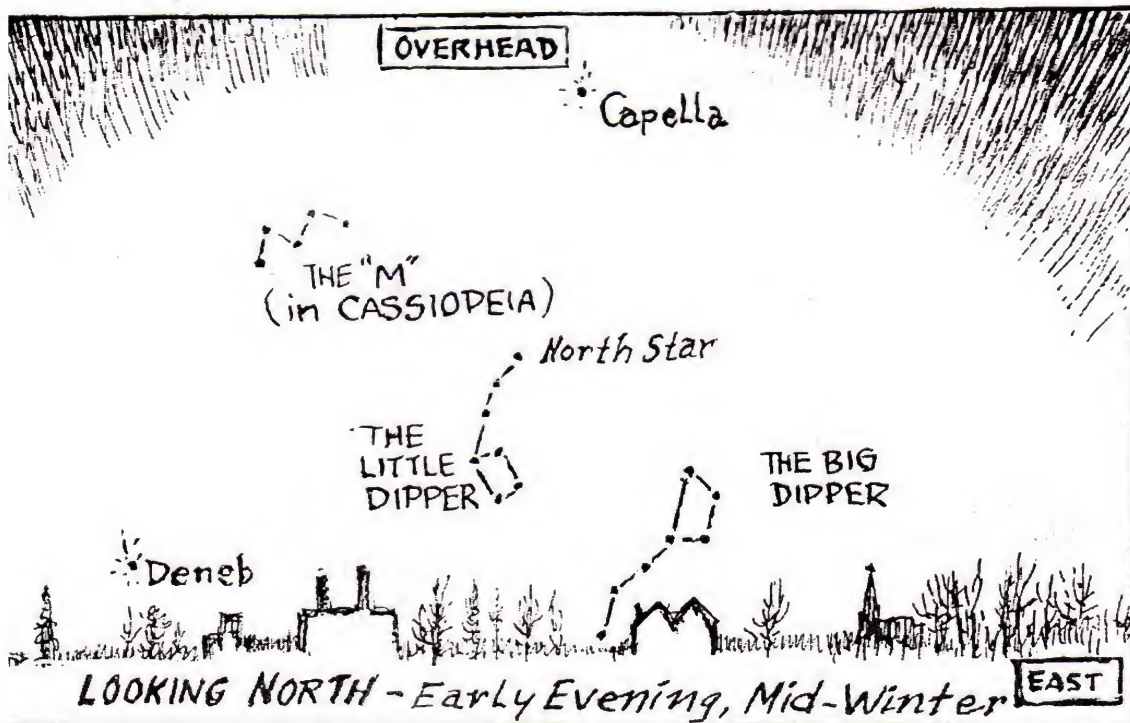 OVERHEAD
Capella
THE "M"
(in CASSIOPEIA)
North Star
THE
LITTLE
DIPPER
THE BIG
DIPPER
Deneb
LOOKING NORTH - Early Evening, Mid-Winter
EAST